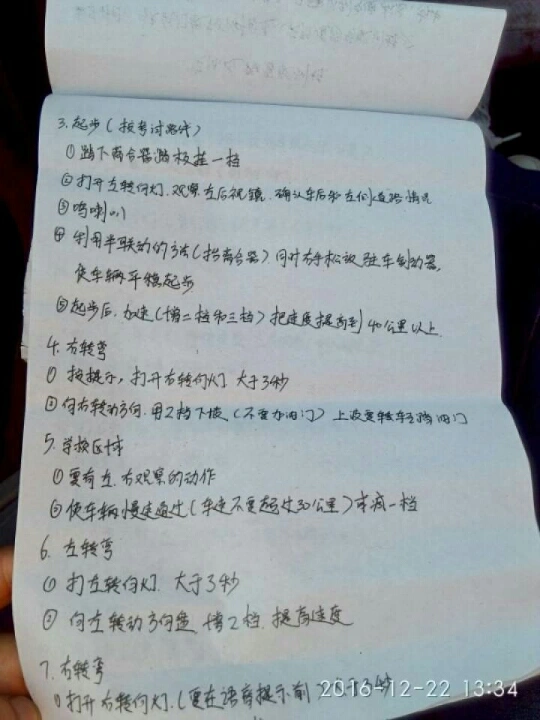 3.起步(按考试路线)
①踏下离合器踏板挂一档
②打开左转向灯.观察左后视镜.确认车后和左侧道路情况
③鸣喇叭
④利用半联动的方法(抬离合器)同时右手松放驻车制动器,
使车辆平稳起步
⑤起步后.加速(增二档和三档)把速度提高到40公里以上.
4.右转弯
①按提示,打开右转向灯 大于3秒
②向右转动方向.用2档下坡(不要加油门)上坡
5.学校区域
①要有左.右观察的动作
②使车辆慢速通过(车速不要超过30公里)
6.左转弯
①打左转向灯.大于3秒
②向左转动方向盘.增2档.提高速度
7.右转弯
①打开右转向灯.(要在语音提示前)大于3秒
2016-12-22 13:34